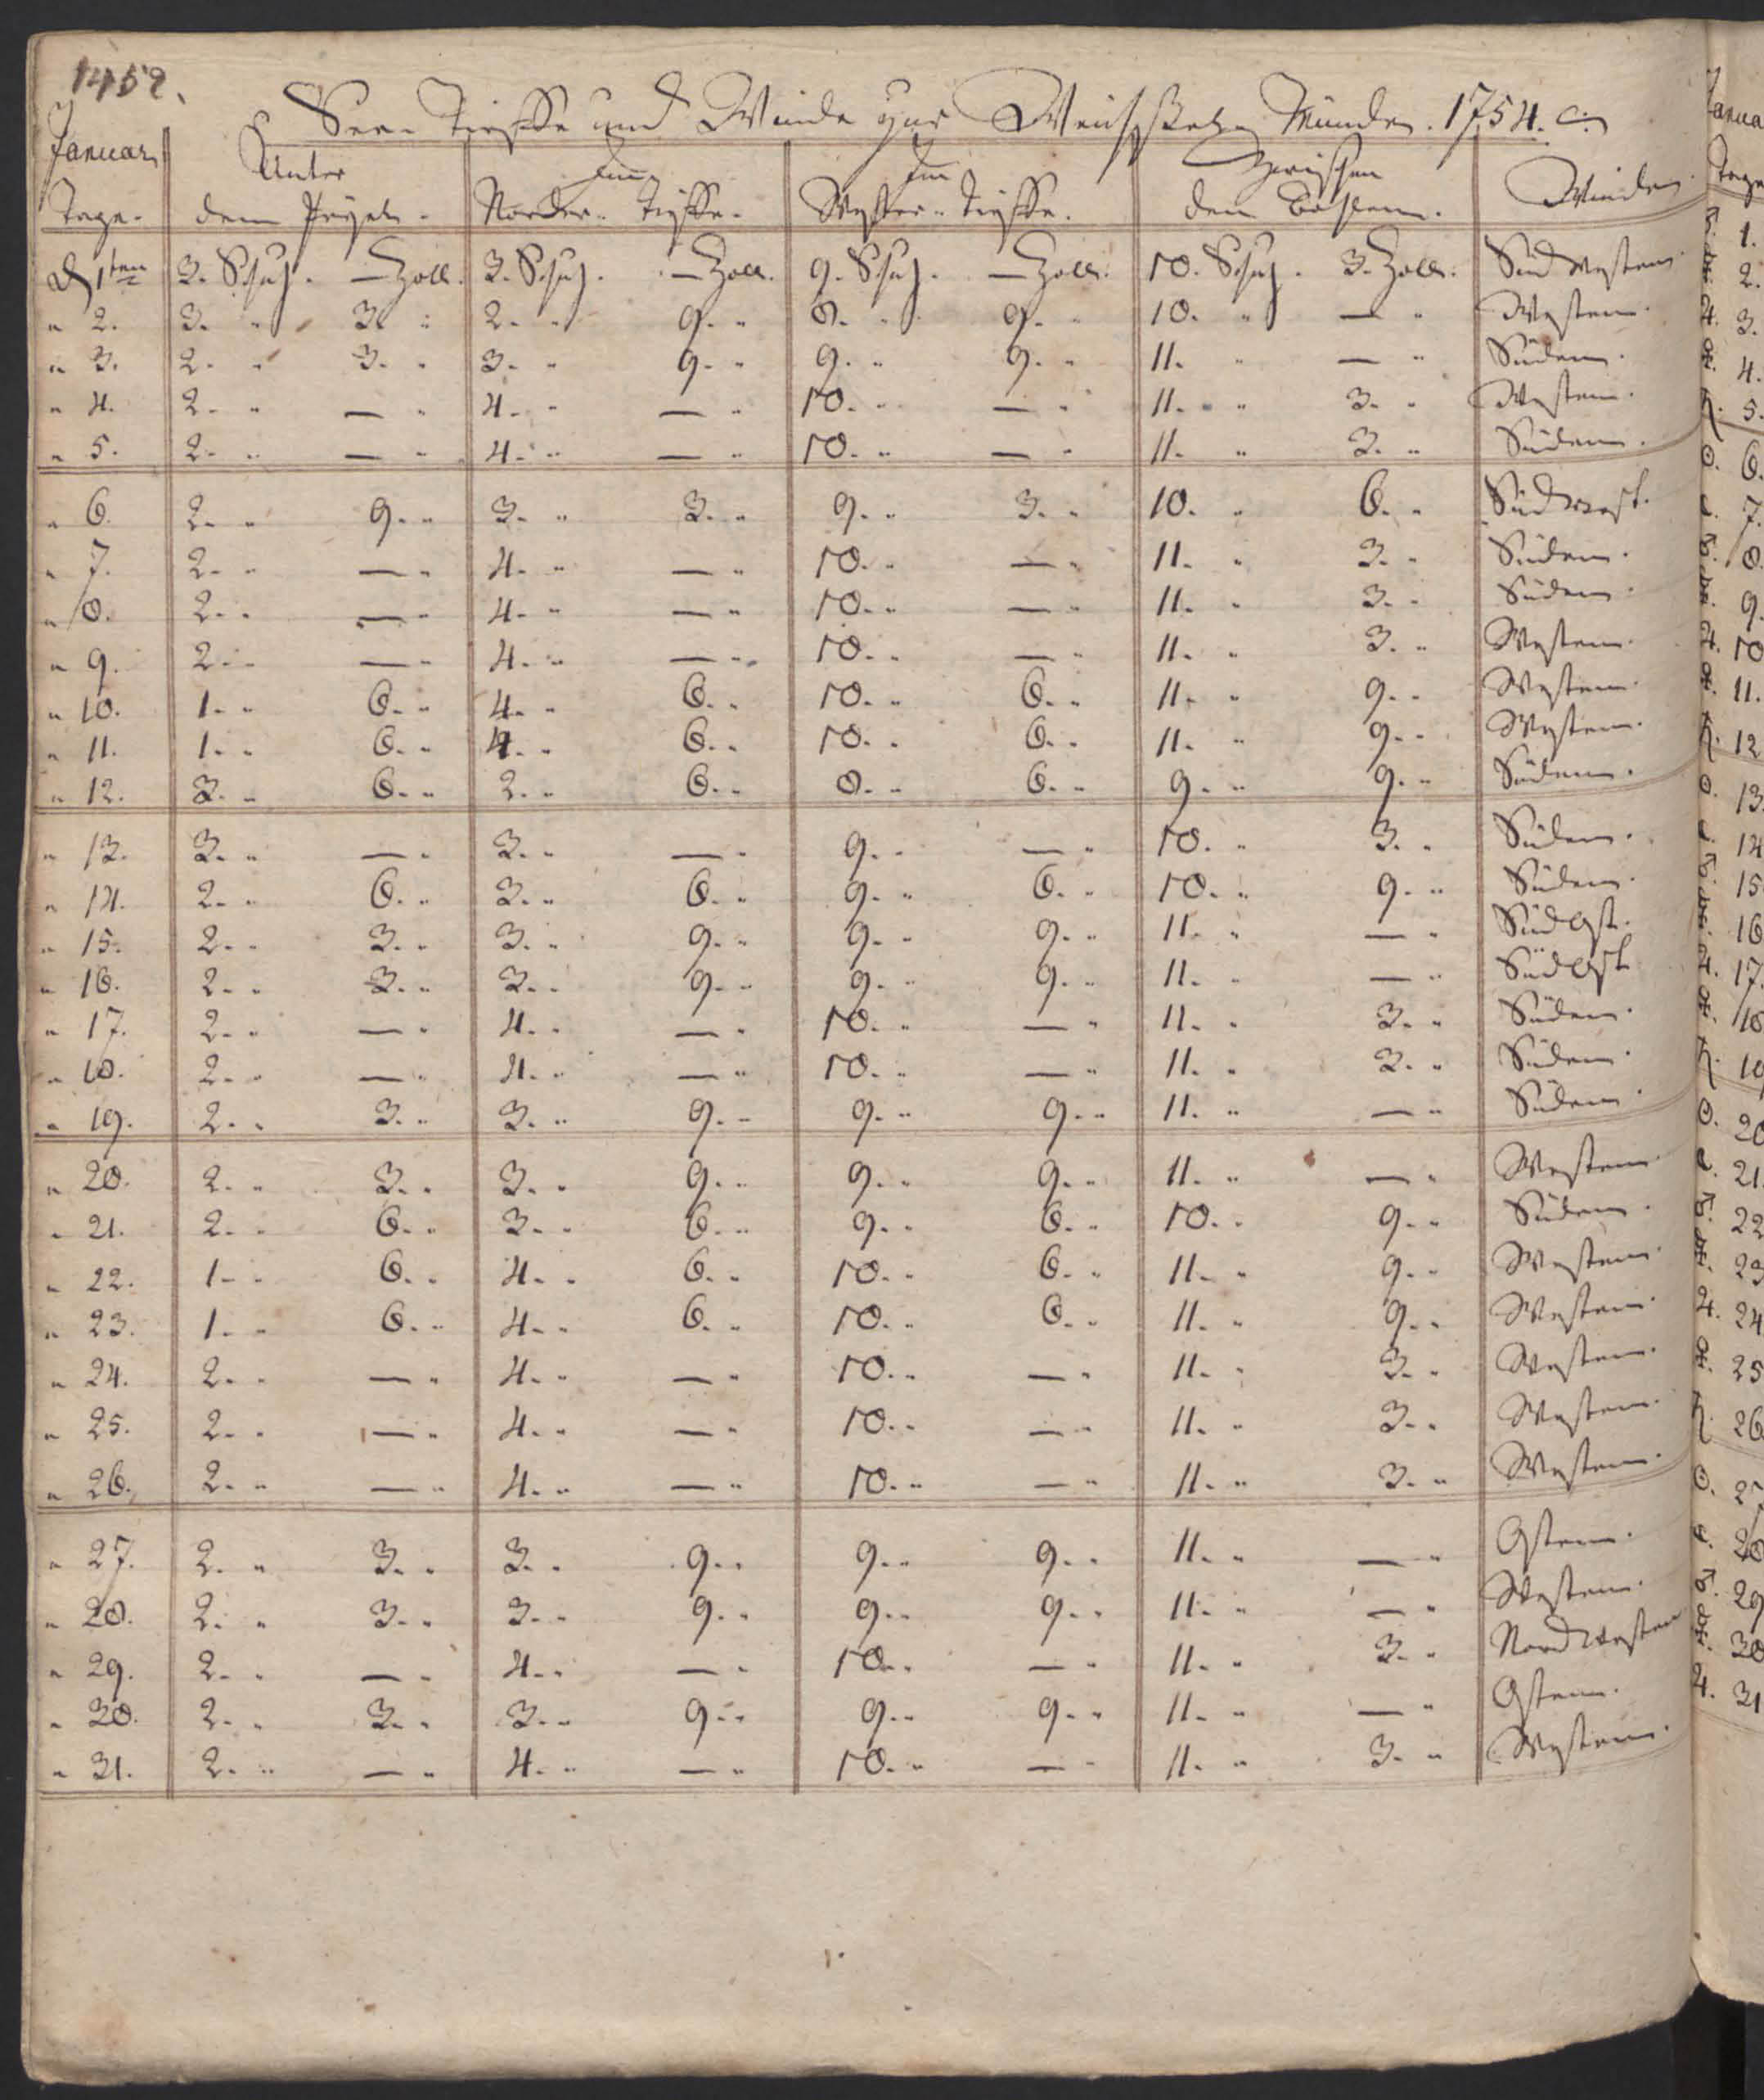 1452.
See- Tieffe und Winde zur Weichssel- Münden. 1754. a:
Januar. Unter Im Im Zwischen Winden.
Tage. dem Pegel. Norder- Tieffe. Wester- Tieffe. den Bohlen.
D 1ten 3. Schuh. — Zoll. 3. Schuh. — Zoll. 9. Schuh. — Zoll. 10. Schuh. 3. Zoll. Süd Westen
" 2. 3. " 3. " 2. " 9. " 8. " 9. " 10. " — " Westen.
" 3. 2. " 3. " 3. " 9. " 9. " 9. " 11. " — " Süden.
" 4. 2. " — " 4. " — " 10. " — " 11. " 3. " Westen.
" 5. 2. " — " 4. " — " 10. " — " 11. " 3. " Süden.
" 6. 2. " 9. " 3. " 3. " 9. " 3. " 10. " 6. " Südwest.
" 7. 2. " — " 4. " — " 10. " — " 11. " 3. " Süden.
" 8. 2. " — " 4. " — " 10. " — " 11. " 3. " Süden.
" 9. 2. " — " 4. " — " 10. " — " 11. " 3. " Westen.
" 10. 1. " 6. " 4. " 6. " 10. " 6. " 11. " 9. " Westen.
" 11. 1. " 6. " 4. " 6. " 10. " 6. " 11. " 9. " Westen.
" 12. 3. " 6. " 2. " 6. " 8. " 6. " 9. " 9. " Süden.
" 13. 3. " — " 3. " — " 9. " — " 10. " 3. " Süden.
" 14. 2. " 6. " 3. " 6. " 9. " 6. " 10. " 9. " Süden.
" 15. 2. " 3. " 3. " 9. " 9. " 9. " 11. " — " Süd Ost.
" 16. 2. " 3. " 3. " 9. " 9. " 9. " 11. " — " Süd Ost
" 17. 2. " — " 4. " — " 10. " — " 11. " 3. " Süden.
" 18. 2. " — " 4. " — " 10. " — " 11. " 3. " Süden.
" 19. 2. " 3. " 3. " 9. " 9. " 9. " 11. " — " Süden.
" 20. 2. " 3. " 3. " 9. " 9. " 9. " 11. " — " Westen.
" 21. 2. " 6. " 3. " 6. " 9. " 6. " 10. " 9. " Süden.
" 22. 1. " 6. " 4. " 6. " 10. " 6. " 11. " 9. " Westen.
" 23. 1. " 6. " 4. " 6. " 10. " 6. " 11. " 9. " Westen.
" 24. 2. " — " 4. " — " 10. " — " 11. " 3. " Westen.
" 25. 2. " — " 4. " — " 10. " — " 11. " 3. " Westen.
" 26. 2. " — " 4. " — " 10. " — " 11. " 3. " Westen.
" 27. 2. " 3. " 3. " 9. " 9. " 9. " 11. " — " Osten.
" 28. 2. " 3. " 3. " 9. " 9. " 9. " 11. " — " Westen.
" 29. 2. " — " 4. " — " 10. " — " 11. " 3. " Nord Westen
" 30. 2. " 3. " 3. " 9. " 9. " 9. " 11. " — " Osten.
" 31. 2. " — " 4. " — " 10. " — " 11. " 3. " Westen.
Janua
Tage
1.
2.
3.
4.
5.
6.
7.
8.
9.
10
11.
12
13.
14
15
16
17.
18
19
20
21.
22
23
24
25
26
27
28
29
30
31